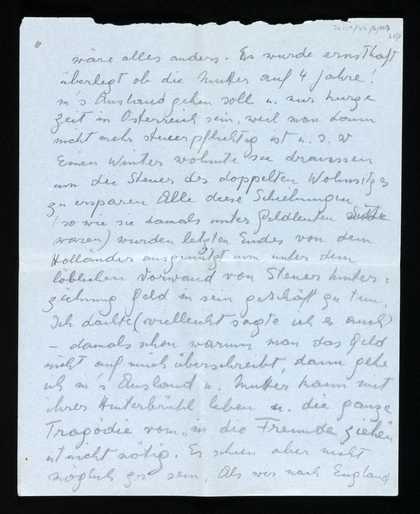 wäre alles anders. Es wurde ernsthaft
überlegt ob die Mutter auf 4 Jahre!
in's Ausland gehen soll u. nur kurze
Zeit in Österreich sein, weil man dann
nicht mehr steuerpflichtig ist u. s. w
Einen Winter wohnte sie draussen
um die Steuer des doppelten Wohnsitzes
zu ersparen Alle diese Schiebungen
(so wie sie damals unter Geldleuten Sitte
waren) wurden letzten Endes von dem
Holländer ausgenützt um unter dem
löblichen Vorwand von Steuerhinter=
ziehung Geld in sein Geschäft zu tun.
Ich dachte (vielleicht sagte ich es auch)
– damals schon warum man das Geld
nicht auf mich überschreibt, dann gehe
ich in's Ausland u. Mutter kann mit
ihrer Hinterbrühl leben u. die ganze
Tragödie vom „in die Fremde ziehen
ist nicht nötig. Es schien aber nicht
möglich zu sein. Als wir nach England